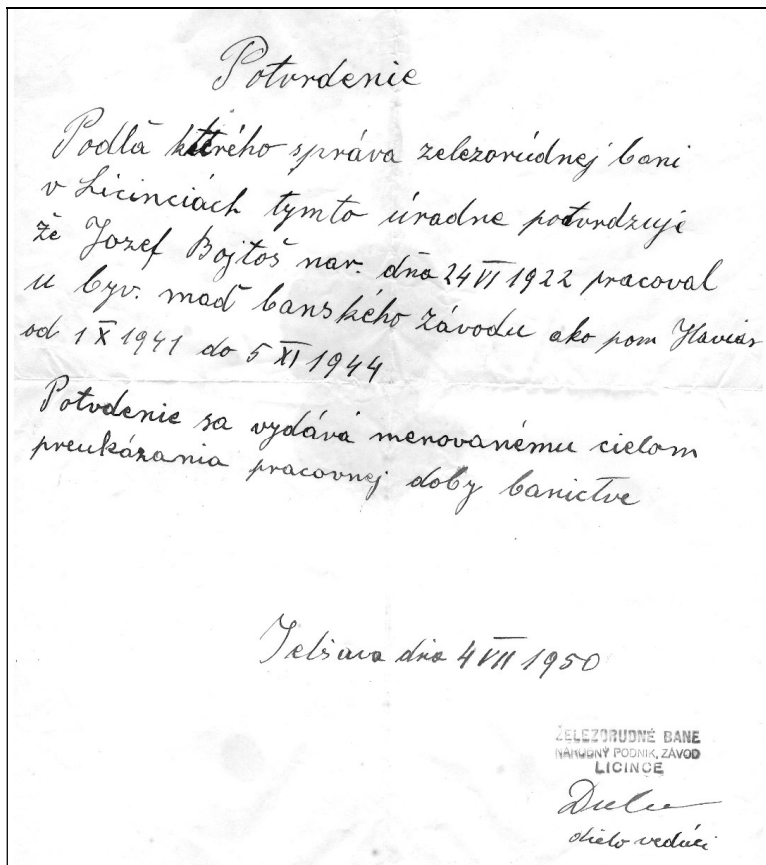 Potvrdenie
Podlã ktorého správa zelezorúdnej bani
v Licinciách tymto úradne potvrdzuje
že Jozef Bojtoš nar. dňa 24 VI 1922 pracoval
u byv. maď banského závodu ako pom Haviar
od 1 X 1941 do 5 XI 1944
Potvdenie sa vydává menovanému cielom
preukázania pracovnej doby banictve
Jelšava dňa 4 VII 1950
ŽELEZORUDNÉ BANE
NÁRODNÝ PODNIK, ZÁVOD
LICINCE
dielo vedúci